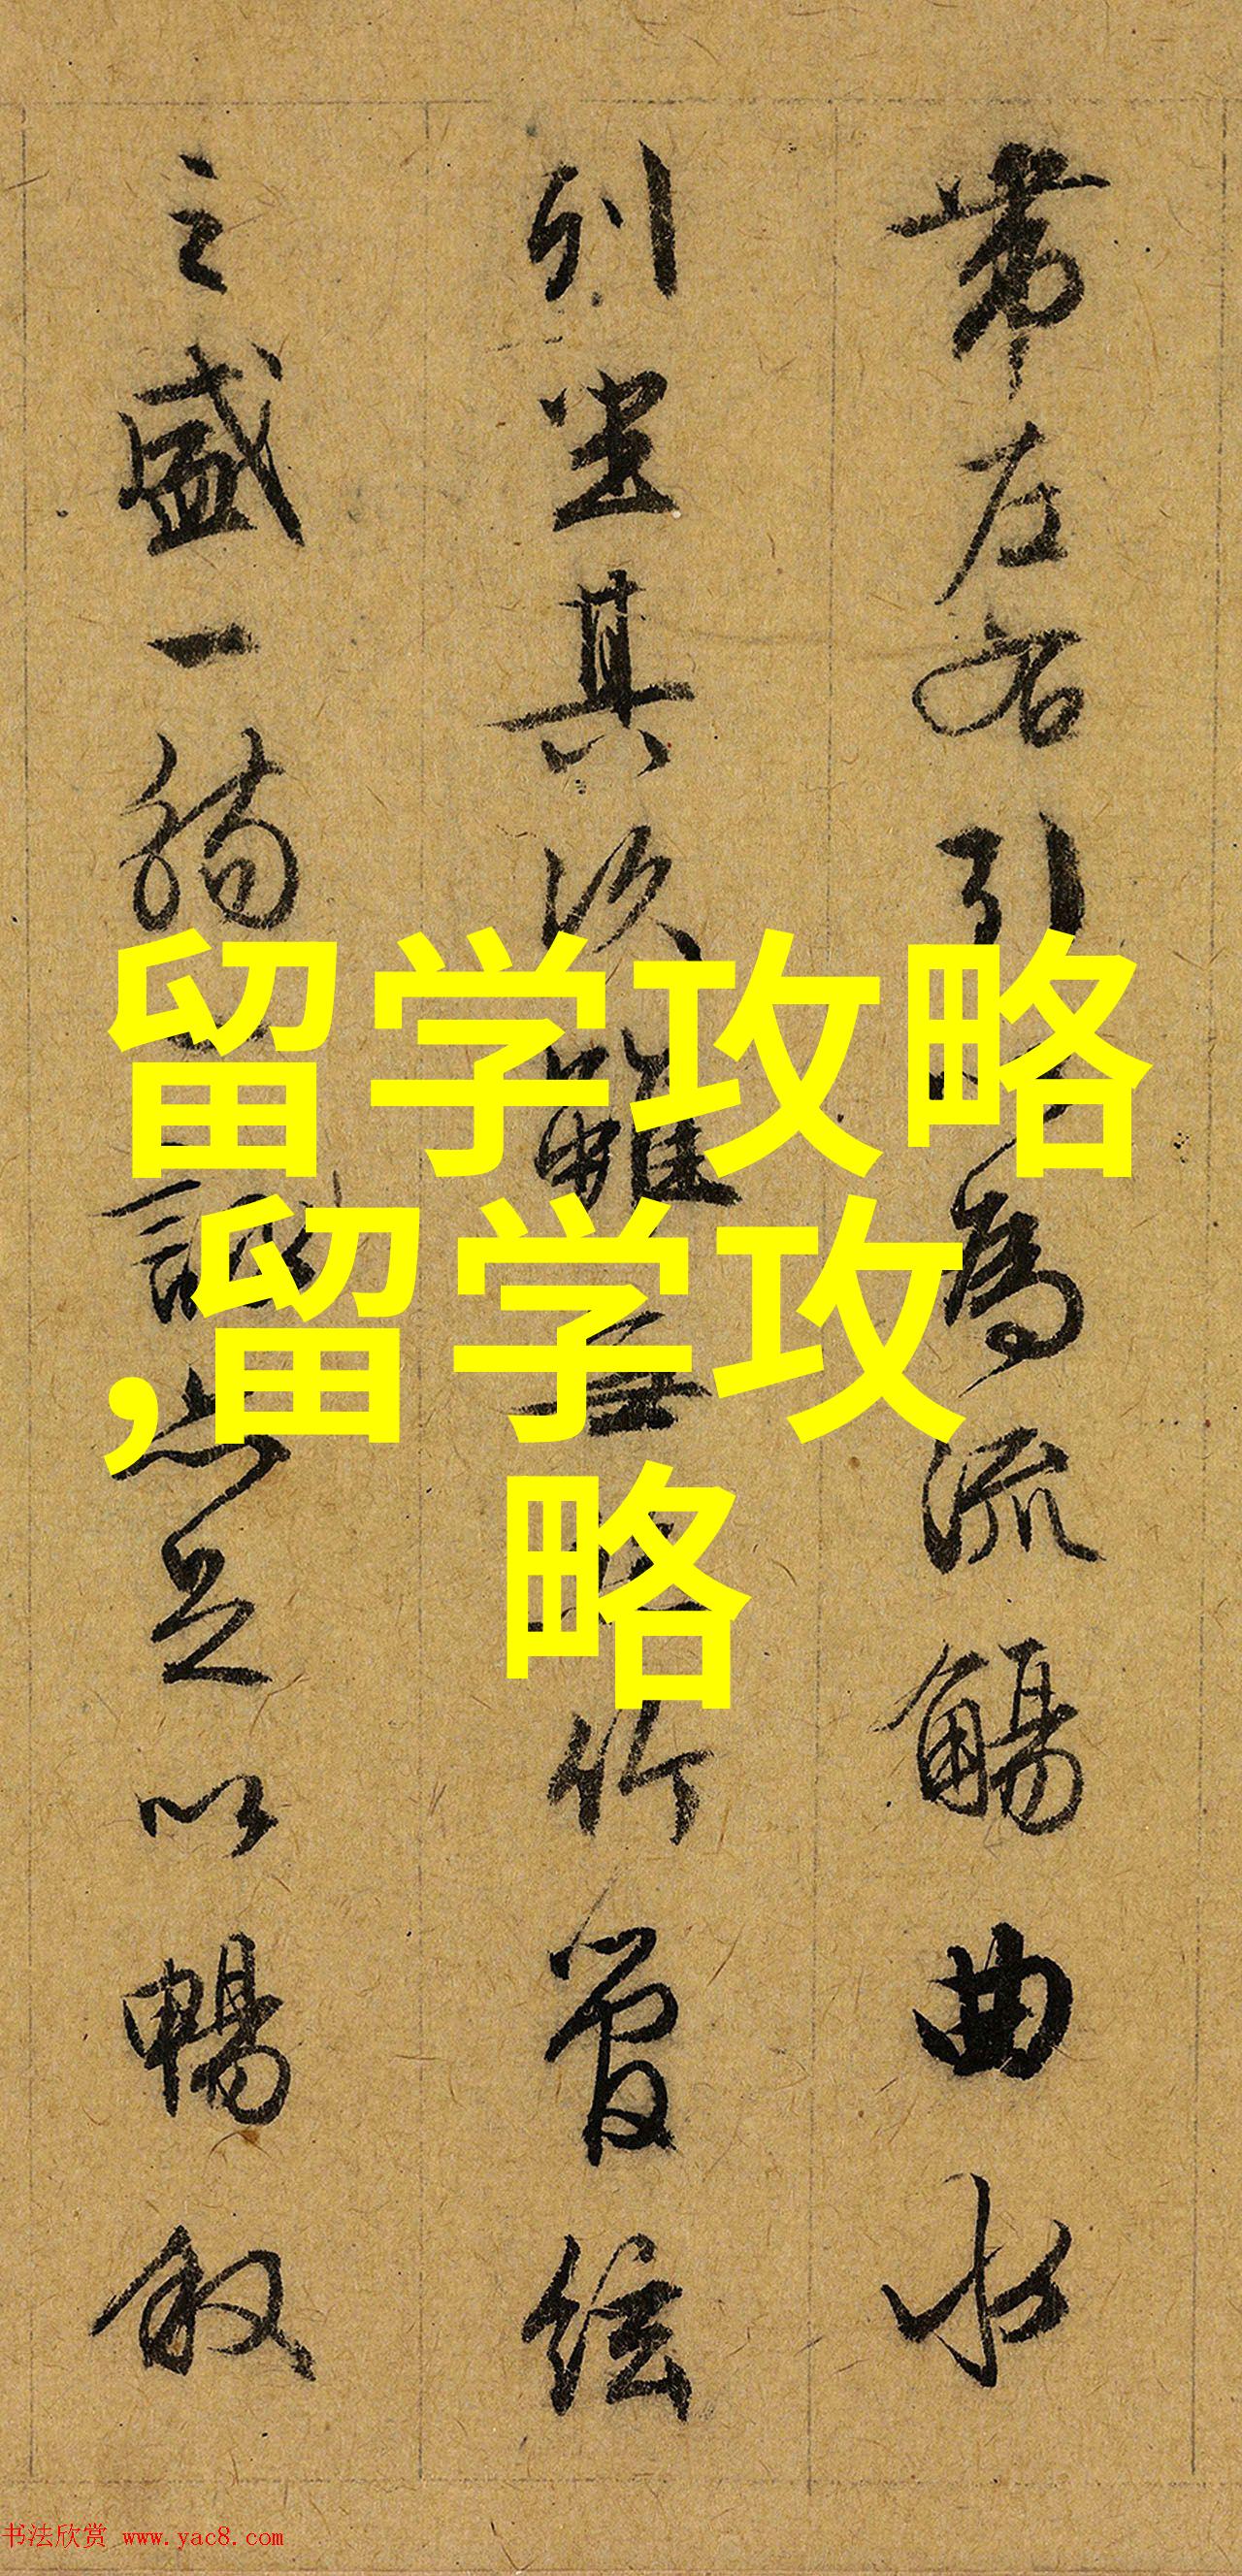 帶左右引為流觴曲水
列坐其次雖無竹管絃
之盛一觴詠亦足以暢叙
留学攻略
,留学攻
略
书法欣赏 www.yac8.com